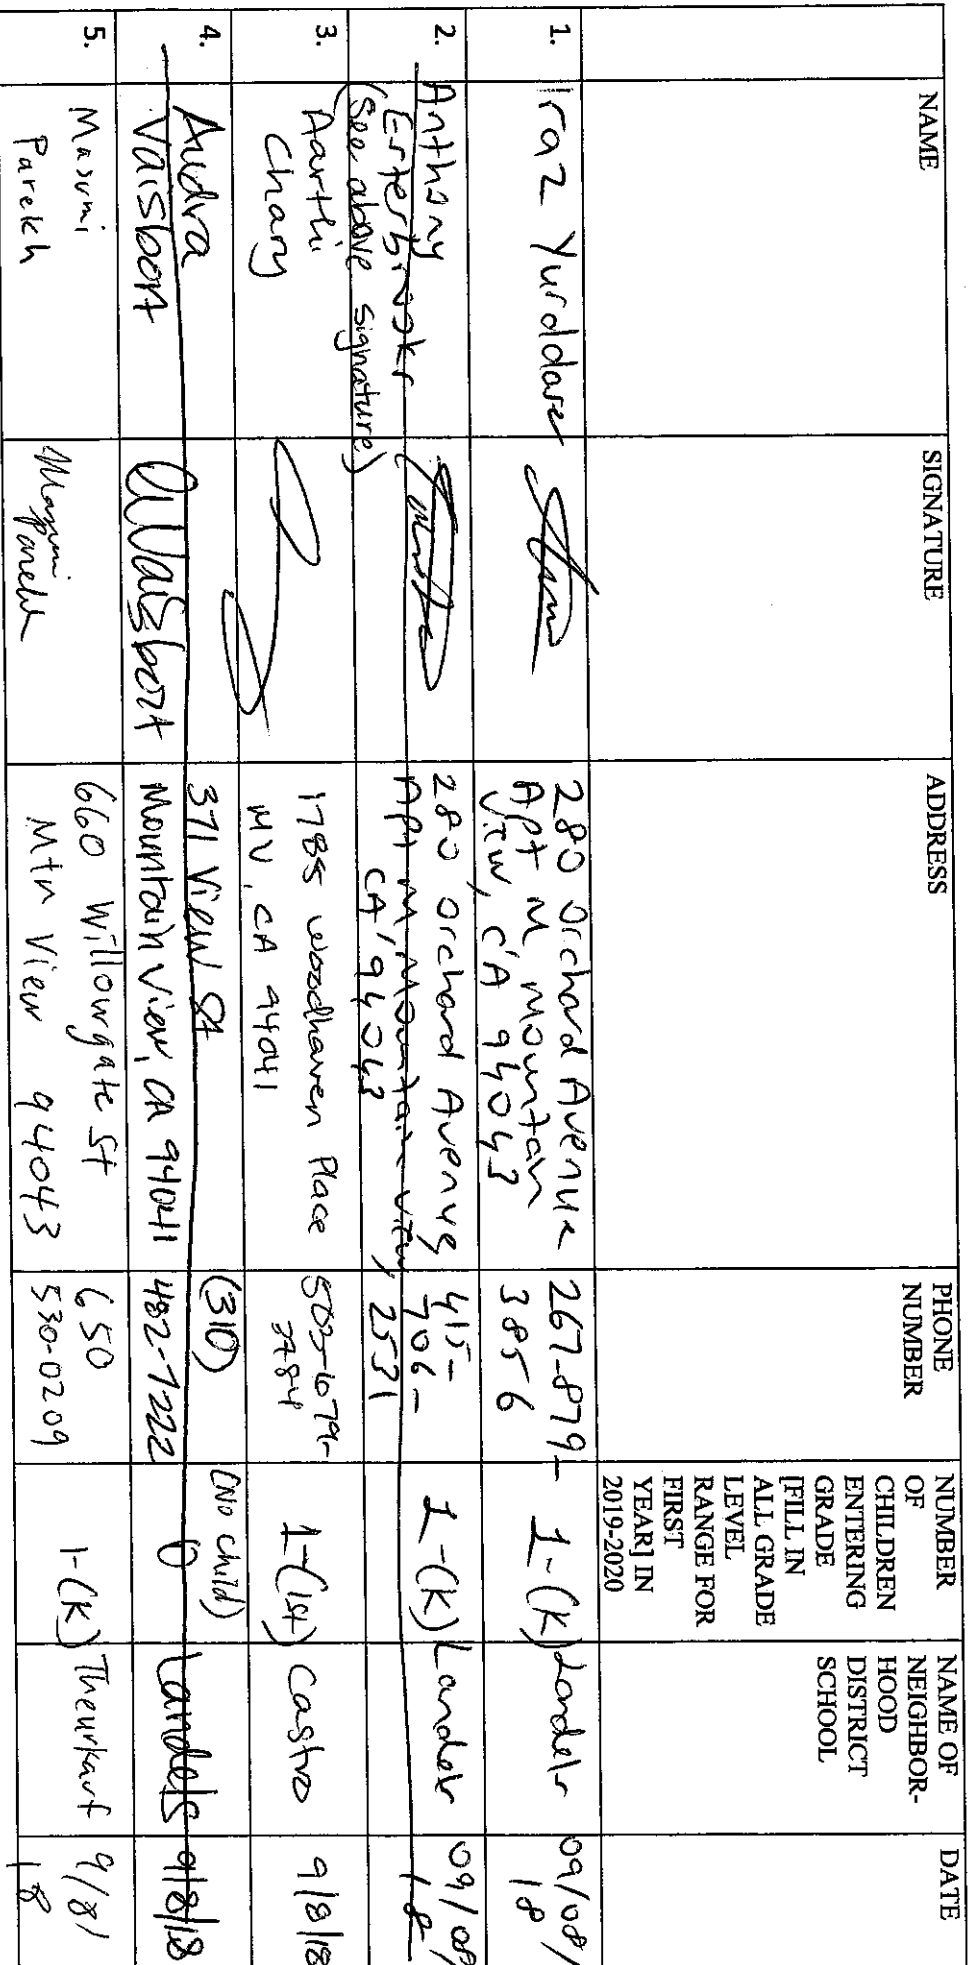 NAME
SIGNATURE
ADDRESS
PHONE
NUMBER
NUMBER
OF
CHILDREN
ENTERING
GRADE
[FILL IN
ALL GRADE
LEVEL
RANGE FOR
FIRST
YEAR] IN
2019-2020
NAME OF
NEIGHBOR-
HOOD
DISTRICT
SCHOOL
DATE
1.
Iraz Yurddaser
280 Orchard Avenue
Apt M, Mountain
View, CA 94043
267-879-
3856
1-(K)
Landels
09/08/
18
2.
Anthony
(See above signature)
280 Orchard Avenue
Apt M, Mountain View,
CA, 94043
415-
706-
2531
1-(K)
Landels
09/08/
18
3.
Aarthi
Chary
1785 Woodhaven Place
MV, CA 94041
502-679-
3784
1-(1st)
Castro
9/8/18
4.
Audra
Vaisbort
AVaisbort
371 View St
Mountain View, CA 94041
(310)
482-7222
(No child)
0
Landels
9/8/18
5.
Masumi
Parekh
Masumi
Parekh
660 Willowgate St
Mtn View 94043
650
530-0209
1-(K)
Theurkauf
9/8/
18